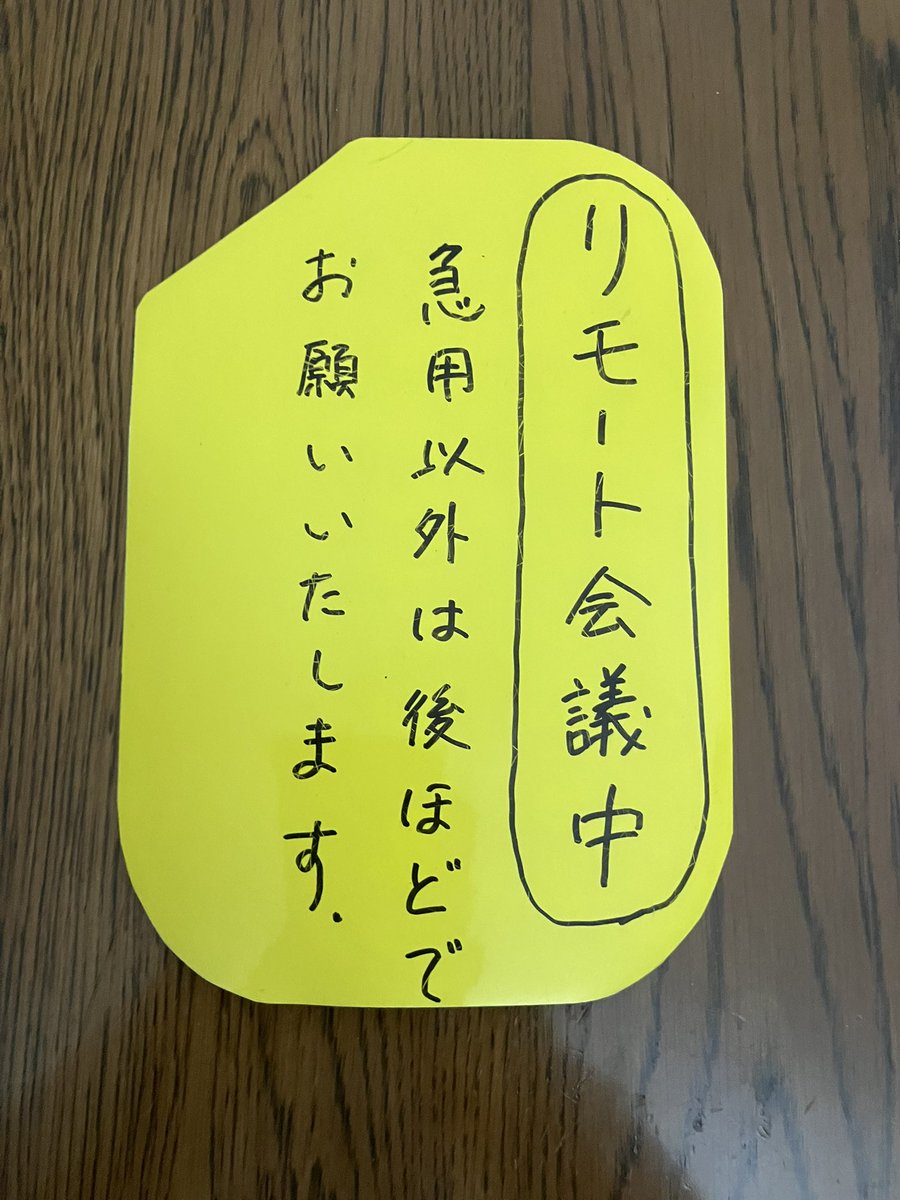 リモート会議中
急用以外は後ほどで
お願いいたします.